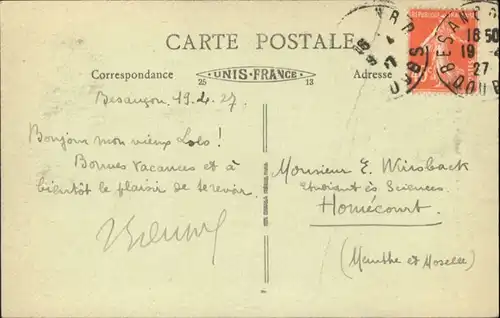 CARTE POSTALE
Correspondance
UNIS-FRANCE
25
13
Adresse
REPUBLIQUE
BESANÇON
DOUBS
18 50
19 - 4
27
Besançon 19.4.27
Bonjour mon vieux Lolo!
Bonnes Vacances et à
bientôt le plaisir de te revoir
Monsieur E. Wirsback
Etudiant ès Sciences
Homécourt.
(Meurthe et Moselle)